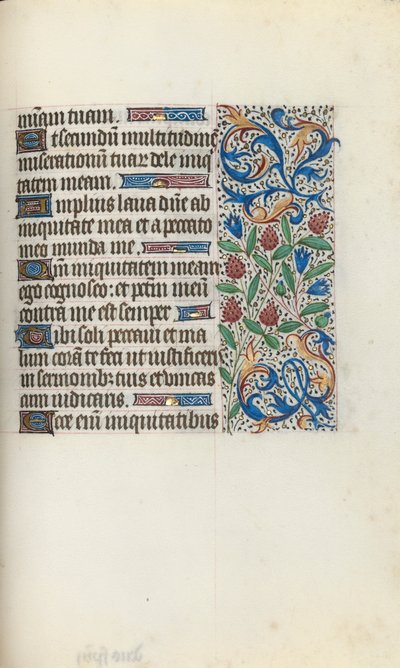 mīam tuam.
Et secundū multitudinē
miserationū tuaꝝ dele iniq
tatem meam.
Amplius laua dn̄e ab
iniquitate mea et a peccato
meo munda me.
Qm̄ iniquitatem meam
ego cognosco: et pctm̄ meū
contra me est semper.
Tibi soli peccaui et ma
lum corā te feci ut iustificeris
in sermonib; tuis et vincas
cum iudicaris.
Ecce em̄ iniquitatibus